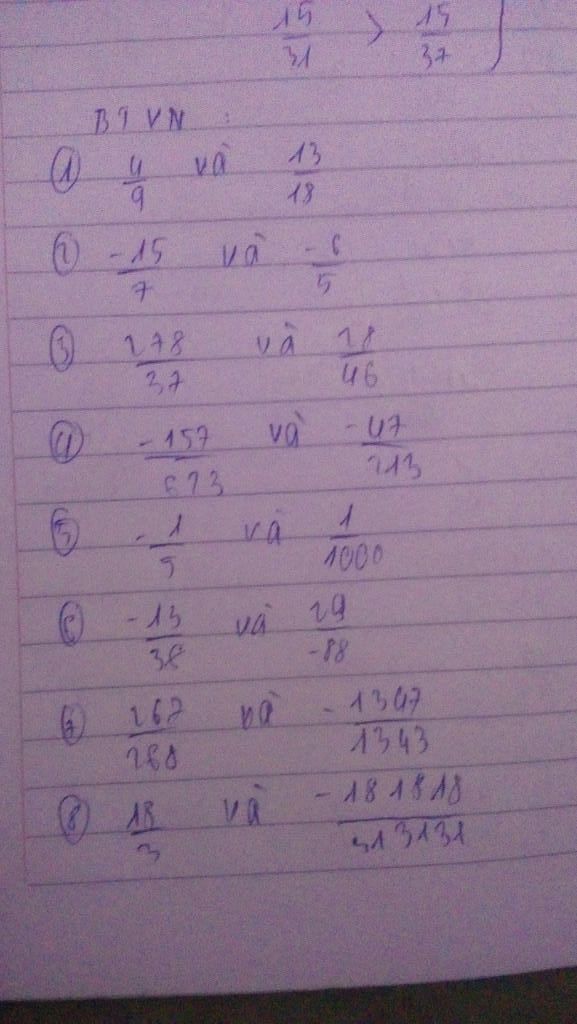 15/31 > 15/37 )
BTVN :
① 4/9 và 13/18
② -15/7 và -6/5
③ 278/37 và 28/46
④ -157/623 và -47/213
⑤ -1/5 và 1/1000
⑥ -13/38 và 29/-88
267/268 và -1347/1343
⑧ 18/3 và -181818/313131